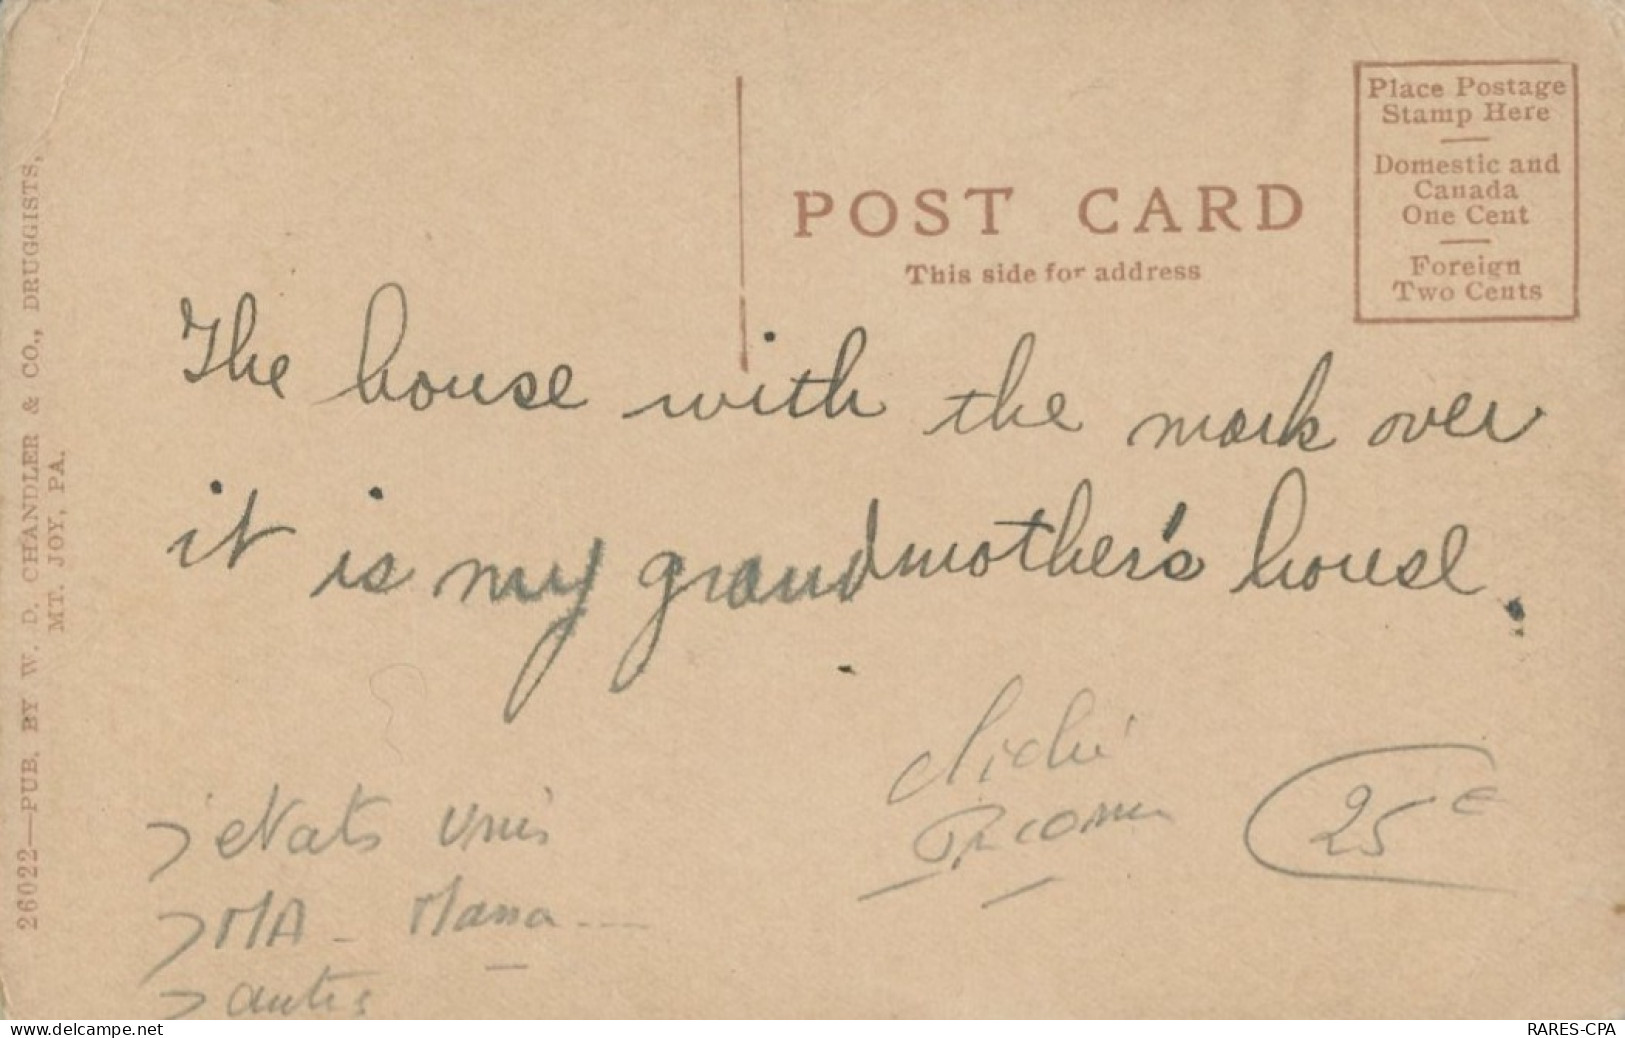 POST CARD
This side for address
Place Postage
Stamp Here
Domestic and
Canada
One Cent
Foreign
Two Cents
The house with the mark over
it is my grandmother's house.
cliché
25 €
etats unis
MA - Massa
autres
26022—PUB. BY W. D. CHANDLER & CO., DRUGGISTS,
MT. JOY, PA.
www.delcampe.net
RARES-CPA